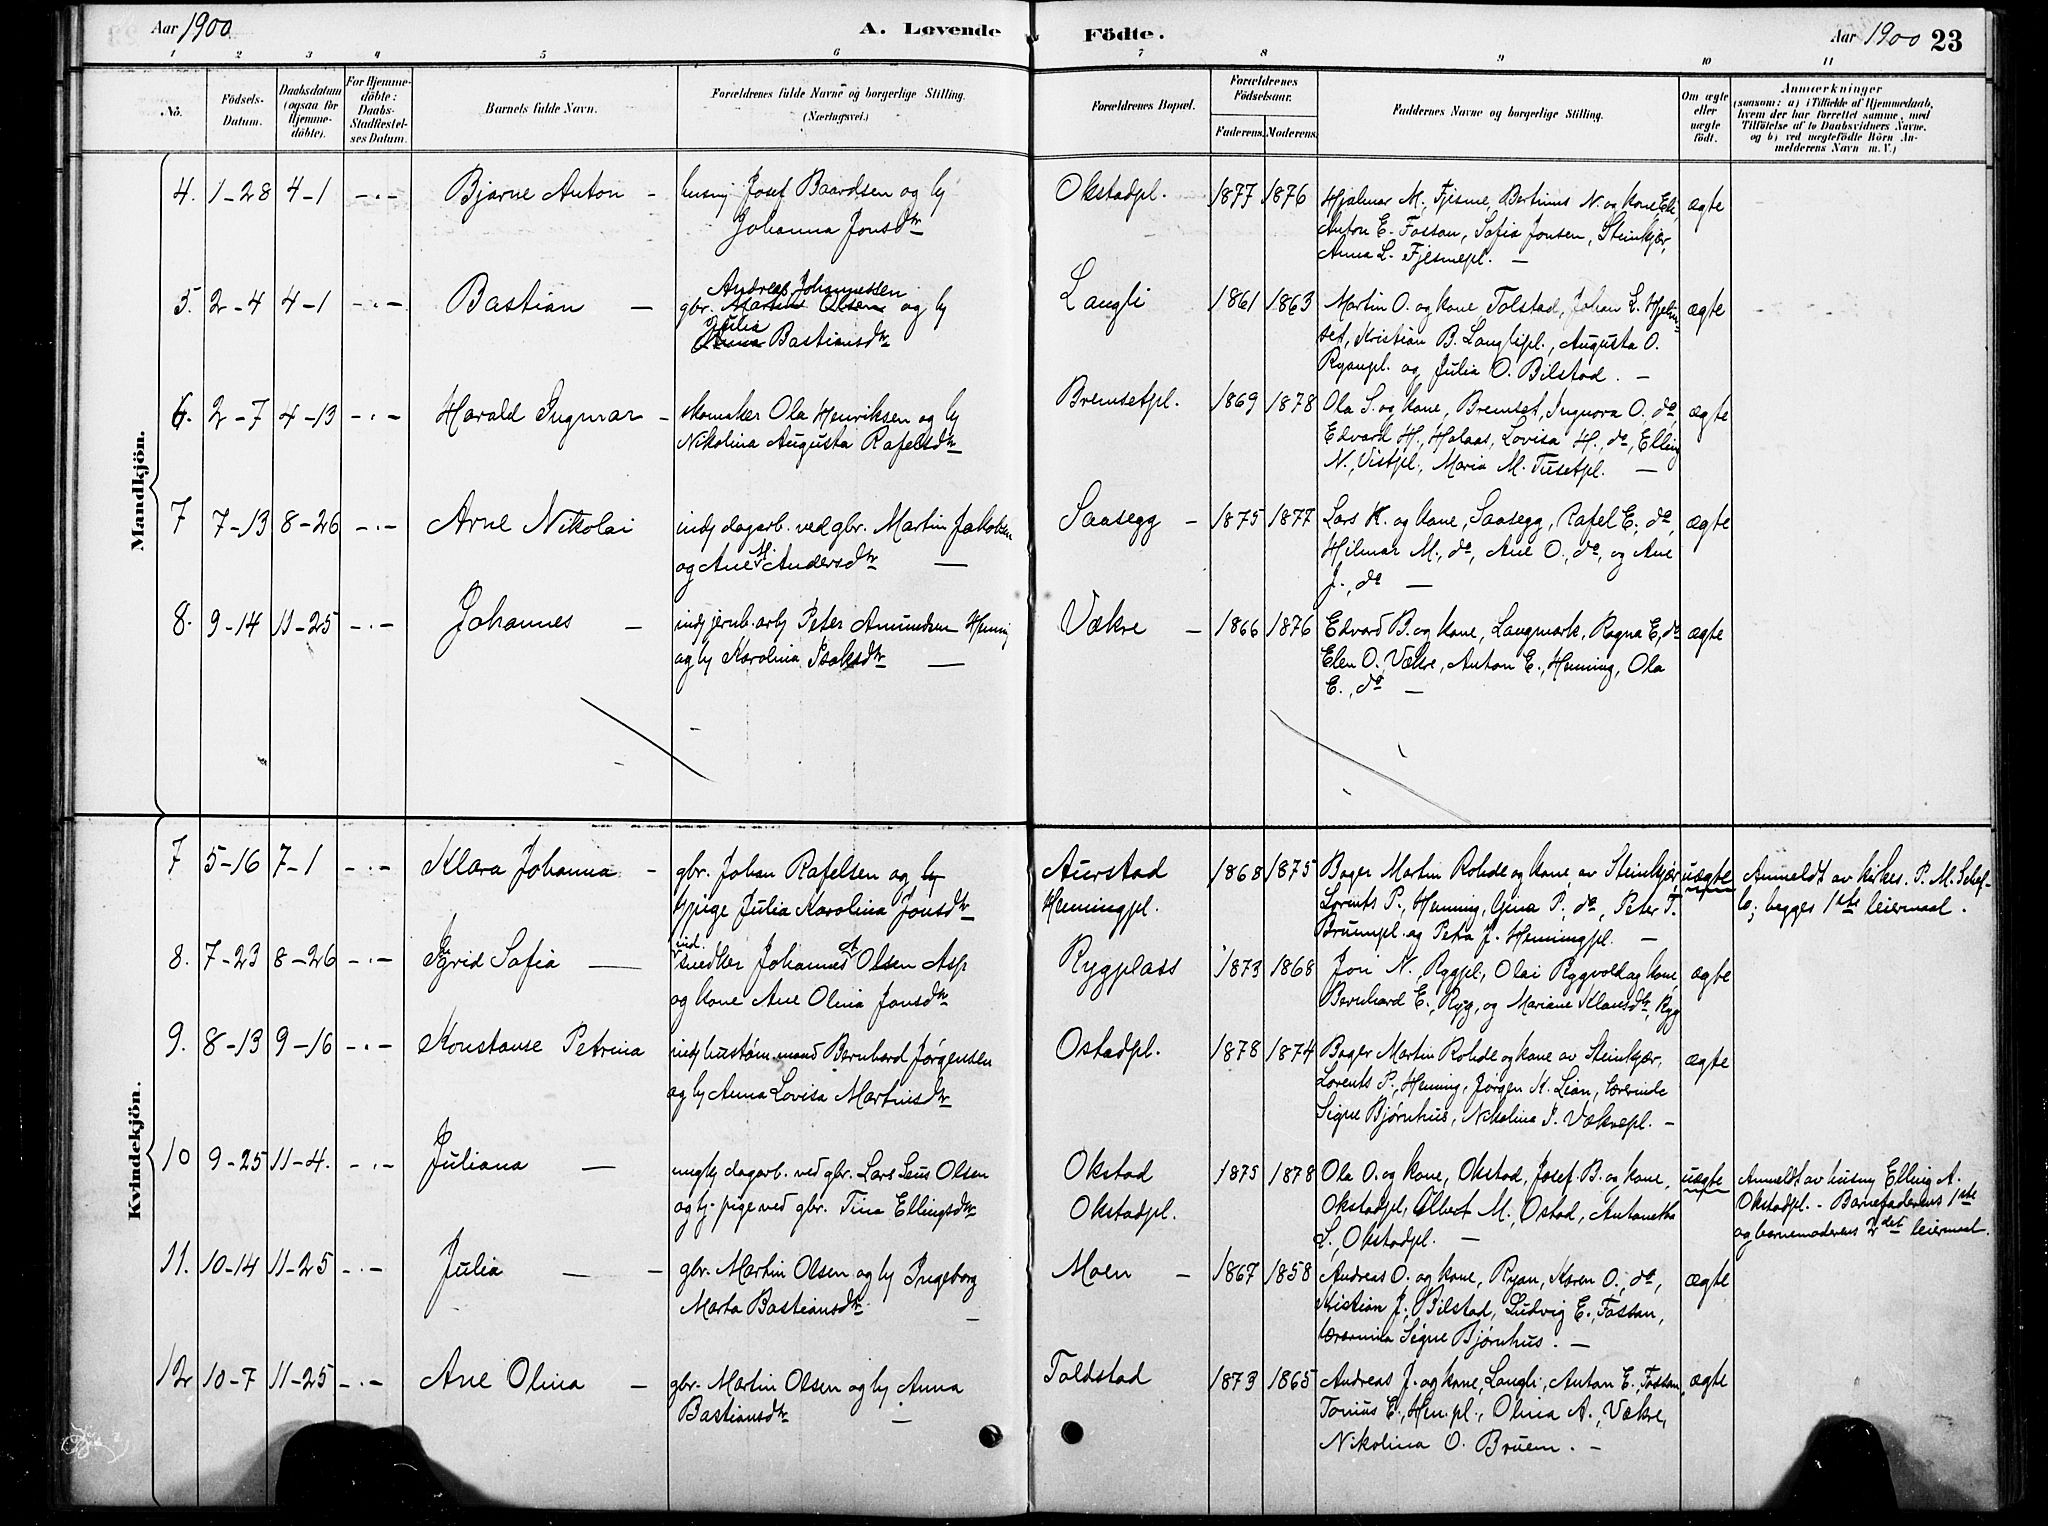 Aar 1900
A. Levende Födte.
Aar 1900 23
1 2 3 4 5 6 7 8 9 10 11
No.
Födsels-Datum.
Daabsdatum (ogsaa for Hjemmedöbte).
For Hjemmedöbte: Daabs-Stadfæstelses Datum.
Barnets fulde Navn.
Forældrenes fulde Navne og borgerlige Stilling. (Næringsvei.)
Forældrenes Bopæl.
Forældrenes Födselsaar.
Faderens. Moderens.
Faddernes Navne og borgerlige Stilling.
Om ægte eller uægte födt.
Anmærkninger
(saasom: a) i Tilfælde af Hjemmedaab, hvem der har forrettet samme, med Tilföielse af to Daabsvidners Navne. og b) ved uægtefödte Börn Anmelderens Navn m. V.)
Mandkjön.
4. 1-28 4-1 -"- Bjarne Anton - husmj Josef Baardsen og hj Okstadpl. 1877 1876 Hjalmar M. Fjesme, Bertinus N. og kone Eli, ægte
Johanna Jonsdtr
Anton E. Fossan, Sofia Jonsen, Steinkjær,
Anna L. Fjesmepl. -
5. 2-4 4-1 -"- Bastian - gbr. Martin Olsen og hj Langli 1861 1863 Martin O. og kone, Tolstad, Johan L. Hjelm- ægte
Andreas Johannessen
Julia
Anna Bastiansdtr
set, Kristian B. Langlipl., Augusta O.
Ryanpl. og Julia O. Bilstad. -
6. 2-7 4-13 -"- Harald Ingmar - skomaker Ola Henriksen og hj Bremsetpl. 1869 1878 Ola S. og kone, Bremset, Ingvora O., do, ægte
Nikolina Augusta Rafelsdtr
Edvard H., Halaas, Lovisa H., do, Elling
N., Vistpl., Maria M. Tusetpl. -
7 7-13 8-26 -"- Arne Nikolai indj dagarb. ved gbr. Martin Jakobsen Saasegg - 1875 1877 Lars K. og kone, Saasegg, Rafel E., do, ægte
og Ane M. Andersdtr -
Hilmar M., do, Ane O., do, og Ane
J., do -
8. 9-14 11-25 -"- Johannes - indj jernb.arbj Peter Amundsen Henning Vækre - 1866 1876 Edvard B. og kone, Langmark, Ragna E, do ægte
og hj Karolina Isaksdtr -
Elen O. Vækre, Anton E., Henning, Ola
E., do -
Kvindekjön.
7 5-16 7-1 -"- Klara Johanna - gbr. Johan Rafelsen og hj Aurstad 1868 1875 Bager Martin Rohde og kone av Steinkjær, uægte Anmeldt av kirkes. P. M. Schef-
hjpige Julia Karolina Jonsdtr Henningpl.
Lorents P., Henning, Gina P., do, Peter T.
lo; begges 1ste leiermaal.
Bruempl. og Petra J. Henningpl. -
8. 7-23 8-26 -"- Sigrid Sofia - ind. snedker Johannes A Olsen Asp Rygplass 1873 1868 Jon N. Rygpl., Olai Rygvold og kone, ægte
og kone Ane Olina Jonsdtr
Bernhard E., Ryg, og Mariane Klausdtr, Ryg
9. 8-13 9-16 -"- Konstanse Petrina indj hustøm.mand Bernhard Jørgensen Ostadpl. 1878 1874 Bager Martin Rohde og kone av Steinkjær, ægte
og hj Anna Lovisa Martinsdtr
Lorents P., Henning, Jørgen K. Lian, lærerinde
Signe Bjørnhus, Nikolina I. Vækrepl. -
10 9-25 11-4. -"- Juliana - ungkj dagarb. ved gbr. Lars Leus Olsen Okstad 1875 1878 Ola O. og kone, Okstad, Josef B. og kone, uægte Anmeldt av husmj Elling A.
og hj. pige ved gbr. Tina Ellingsdtr Okstadpl.
Okstadpl., Albert M., Ostad, Antonetta
Okstadpl. - Barnefaderens 1ste
L., Okstadpl. -
og barnemoderens 2det leiermaal.
11. 10-14 11-25 -"- Julia - - gbr. Martin Olsen og hj Ingeborg Moen - 1867 1858 Andreas O. og kone, Ryan, Karen O., do, ægte
Marta Bastiansdtr -
Kristian J., Bilstad, Ludvig E., Fossan,
lærerinna Signe Bjørnhus. -
12 10-7 11-25 -"- Ane Olina - gbr. Martin Olsen og hj Anna Toldstad 1873 1865 Andreas J. og kone, Langli, Anton E., Fossan, ægte
Bastiansdtr -
Tonius E., Hen.pl., Olina A., Vækre,
Nikolina O. Bruem. -